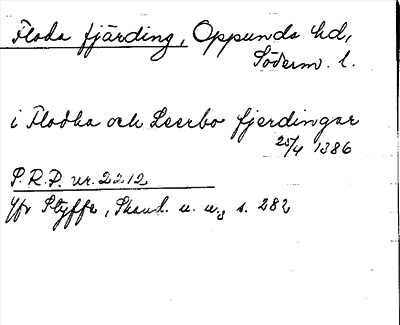 Floda fjärding, Oppunda hd,
Söderm. l.
i Flodha och Leerbo fjerdingar
25/4 1386
P.R.P. nr. 2212
Jfr Styffe, Skand. u. u., s. 282